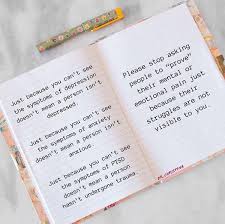 Just because you can't see
the symptoms of depression
doesn't mean a person isn't
depressed.
Just because you can't see
the symptoms of anxiety
doesn't mean a person isn't
anxious.
Just because you can't see
the symptoms of PTSD
doesn't mean a person
hasn't undergone trauma.
Please stop asking
people to "prove"
their mental or
emotional pain just
because their
struggles are not
visible to you.